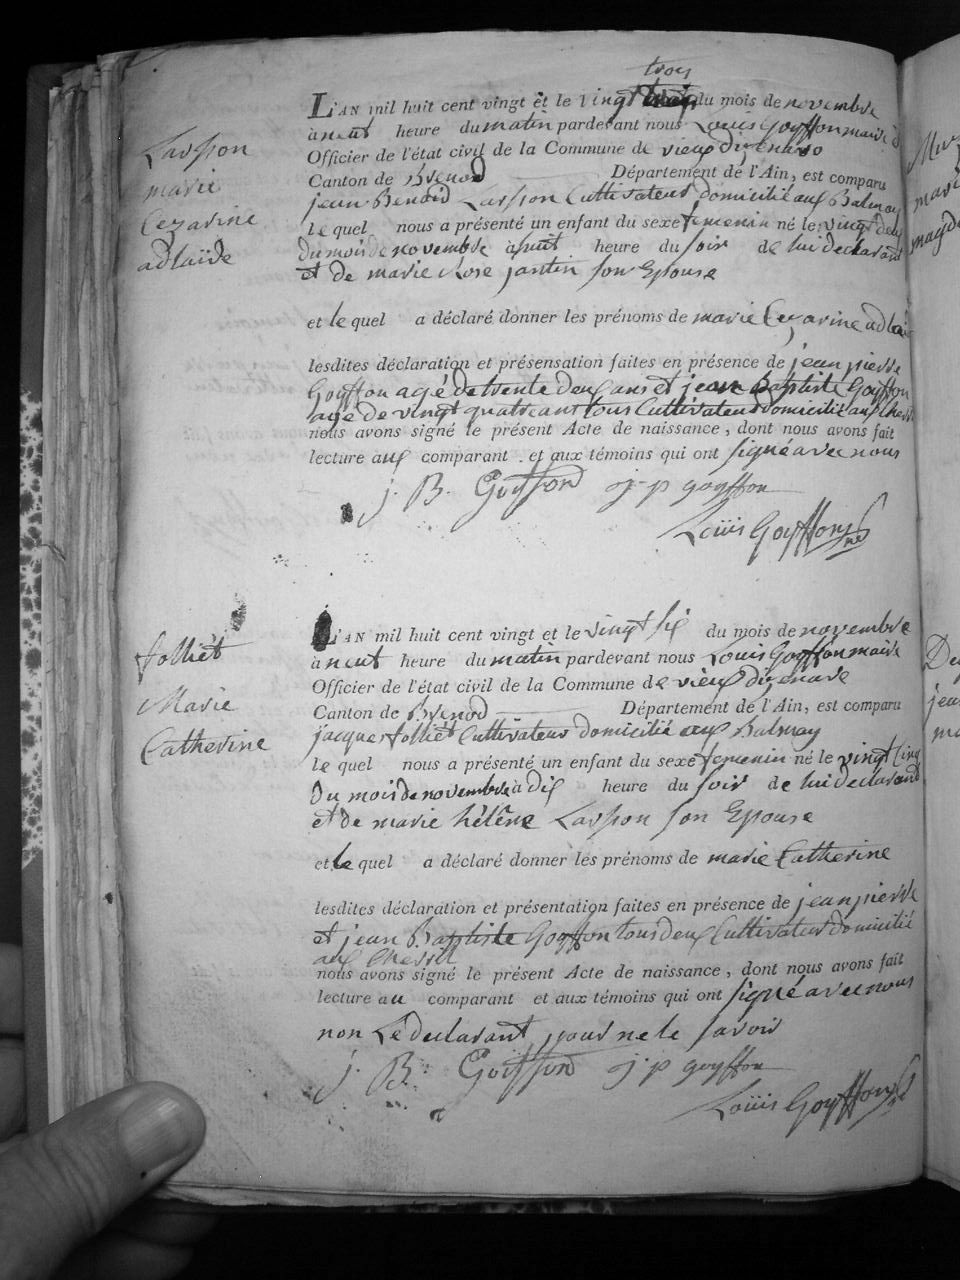 Larsson
marie
Cezarine
adlaïde
troy
L'AN mil huit cent vingt et le vingt du mois de novembre
à neuf heure du matin pardevant nous Louis Goyffon maire
Officier de l'état civil de la Commune de vieux dizenave
Canton de Brenod Département de l'Ain, est comparu
jean Benoid Larsson Cultivateur domicilié aux Balmay
le quel nous a présenté un enfant du sexe femenin né le vingt deux
du mois de novembre à huit heure du soir de lui declarant
et de marie Rose jantin son Epouse
et le quel a déclaré donner les prénoms de marie Cezarine adlai
lesdites déclaration et présensation faites en présence de jean pierre
Goyffon agé de trente deux ans et jean Baptiste Goyffon
agé de vingt quatre ans tous Cultivateur domicilié aux
nous avons signé le présent Acte de naissance, dont nous avons fait
lecture aux comparant . et aux témoins qui ont signé avec nous
j. B. Goyffon j-p goyffon
Louis Goyffon
folliet
Marie
Catherine
L'AN mil huit cent vingt et le vingt six du mois de novembre
à neuf heure du matin pardevant nous Louis Goyffon maire
Officier de l'état civil de la Commune de vieux dizenave
Canton de Brenod Département de l'Ain, est comparu
jacque folliet Cultivateur domicilié aux Balmay
le quel nous a présenté un enfant du sexe femenin né le vingt cinq
Du mois de novembre à dix heure du soir de lui declarand
et de marie hélêne Larsson son Epouse
et le quel a déclaré donner lés prénoms de marie Catherine
lesdites déclaration et présentation faites en présence de jean pierre
et jean Baptiste Goyffon tous deux Cultivateur domicilié
aux
nous avons signé le présent Acte de naissance, dont nous avons fait
lecture au comparant et aux témoins qui ont signé avec nous
non Le declarant pour ne le savoir
j. B. Goyffon j-p goyffon
Louis Goyffon